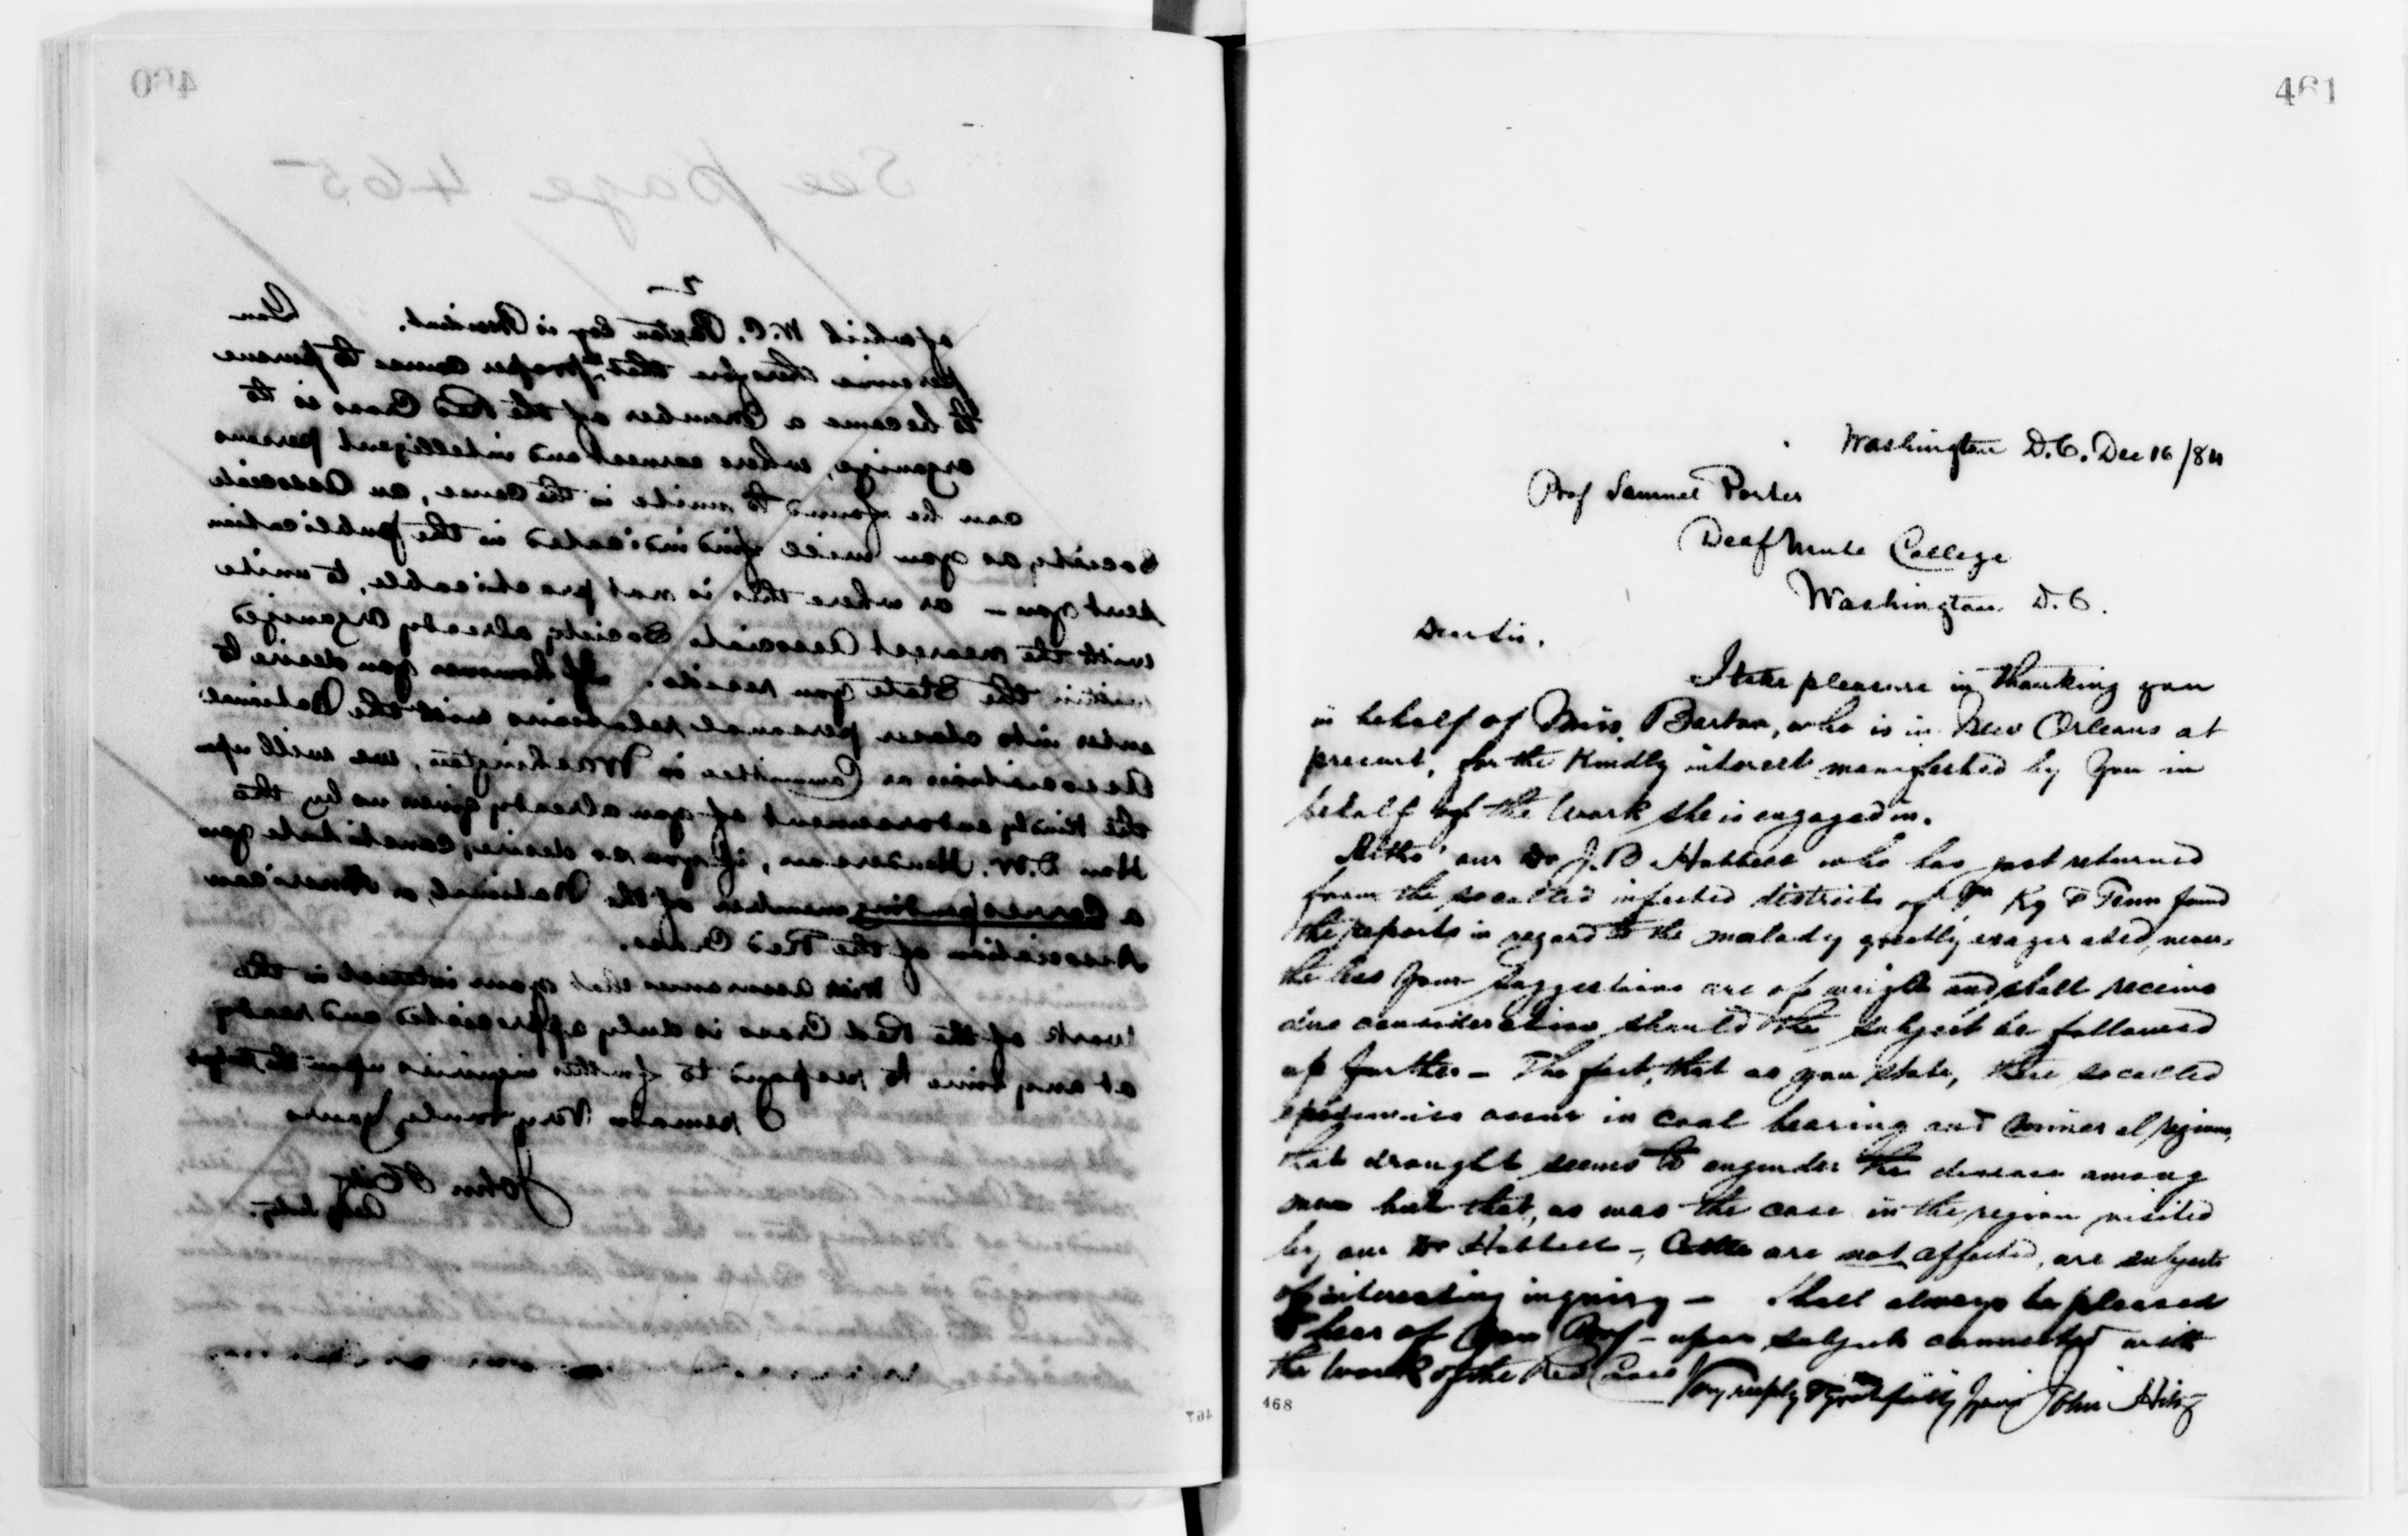 460
See page 465
2
of which W. C. Paxton Esq is President. You
perceive therefore that the proper course to pursue
to become a member of the Red Cross is to
organize, where earnest and intelligent persons
can be found to unite in the cause, an Associate
Society, as you will find indicated in the publication
sent you - or where this is not practicable, to unite
with the nearest Associate Society already organized
within the State you reside. If however you desire to
enter into closer personal relations with the National
Association or Committee in Washington, we will upon
the kind endorsement of you already given us by the
Hon D. W. Henderson, if you so desire, constitute you
a Corresponding member of the National, or American
Association of the Red Cross.
With assurance that your interest in the
work of the Red Cross is duly appreciated and ready
at any time to respond to further inquiries upon the subject
I remain Very truly yours
John Hitz
Actg Secty.
467
461
Washington D.C. Dec 16/84
Prof Samuel Porter
Deaf Mute College
Washington D.C.
Dear Sir,
I take pleasure in thanking you
in behalf of Miss Barton, who is in New Orleans at
present, for the kindly interest manifested by you in
behalf of the work she is engaged in.
Altho' our Dr J. B. Hubbell who has just returned
from the so called infected districts of Va Ky & Tenn found
the reports in regard to the malady greatly exagerated, never-
the less your suggestions are of weight and shall receive
due consideration should the subject be followed
up further - The fact, that as you state, these so called
epidemics occur in coal bearing and mineral regions,
that drought seems to engender the disease among
men but that, as was the case in the region visited
by our Dr Hubbell -, Cattle are not affected, are subjects
of interesting inquiry - Shall always be pleased
to hear of you Prof - upon subjects connected with
the work of the Red Cross Very respfy & gratefully yours John Hitz
468